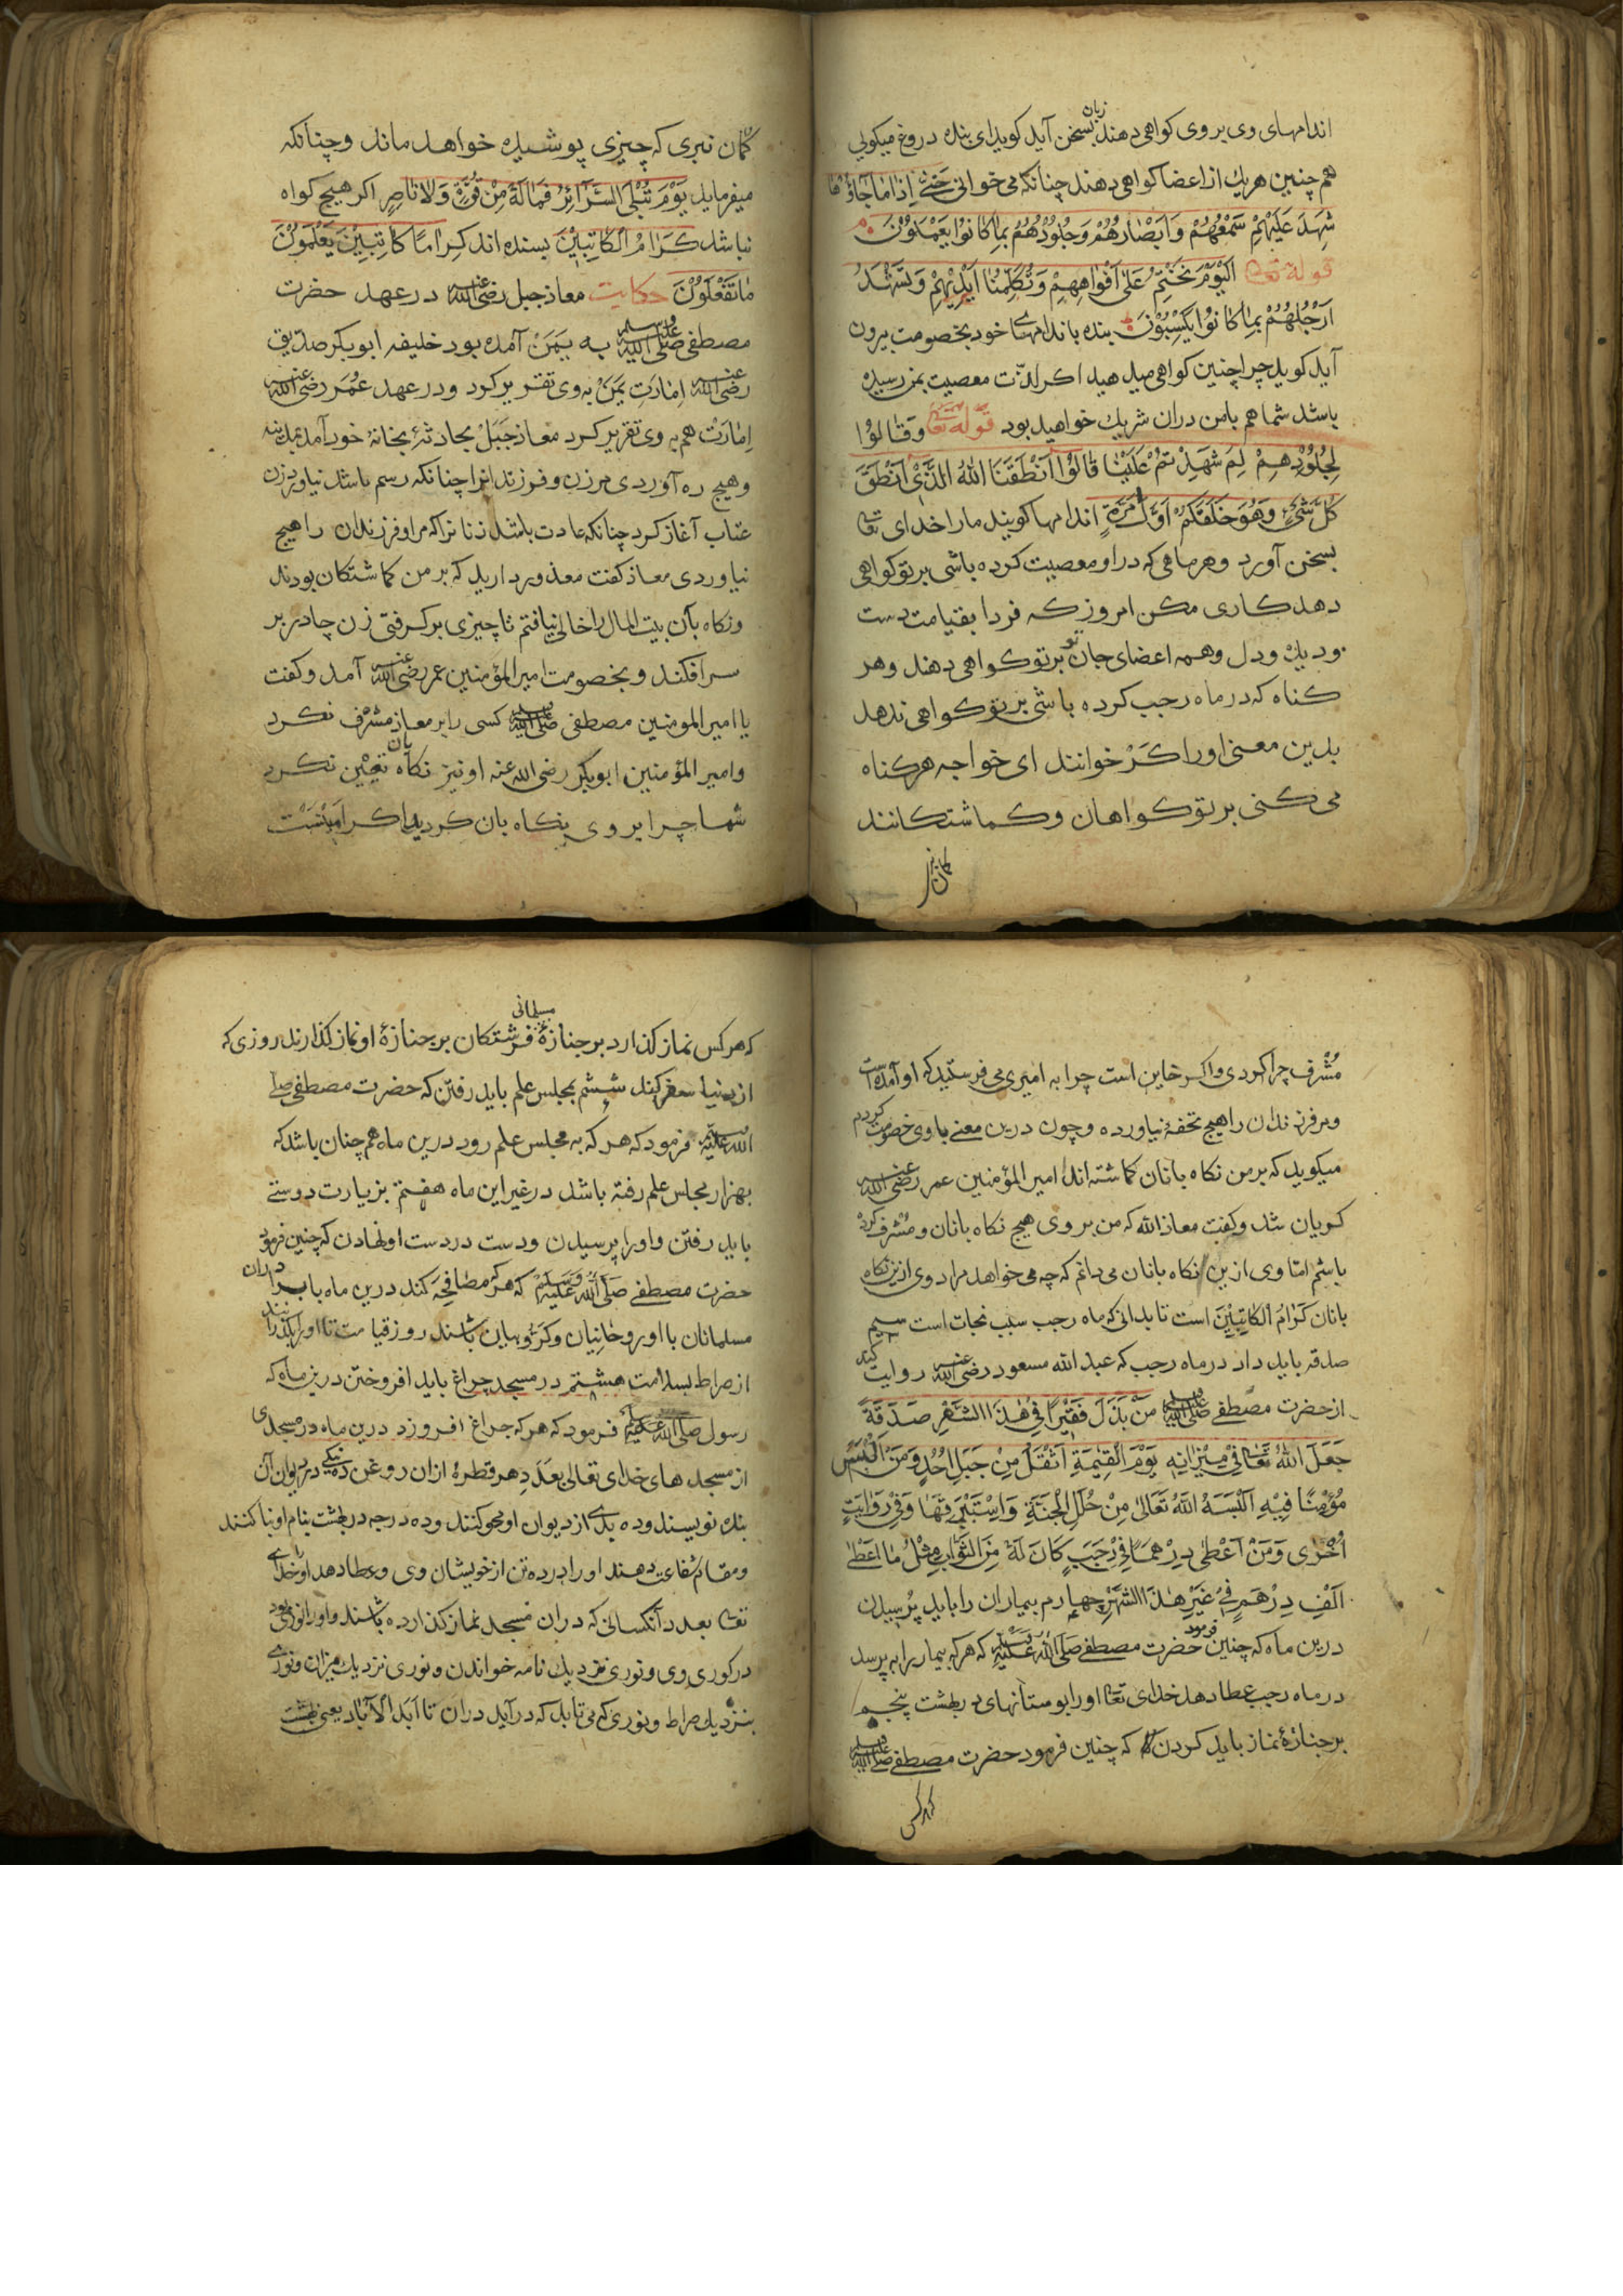 اندامهای وی بر وی کواهی دهند زبان بسخن آید کوید ای بنده دروغ میکوئی
هم چنین هر یك از اعضا کواهی دهند چنانکه می خوانی حَتّٰی اِذَا مَا جَاؤُهَا
شَهِدَ عَلَیْهِمْ سَمْعُهُمْ وَاَبْصَارُهُمْ وَجُلُوْدُهُمْ بِمَا کَانُوْا یَعْمَلُوْنَ
قوله تعا اَلْیَوْمَ نَخْتِمُ عَلٰی اَفْوَاهِهِمْ وَتُکَلِّمُنَا اَیْدِیْهِمْ وَتَشْهَدُ
اَرْجُلُهُمْ بِمَا کَانُوْا یَکْسِبُوْنَ بنده باندامهاے خود بخصومت بیرون
آید کوید چرا چنین کواهی میدهید اکر لذّت معصیت بمن رسیده
باشد شما هم بامن دران شریك خواهید بود قوله تعا وَقَالُوْا
لِجُلُوْدِهِمْ لِمَ شَهِدْتُمْ عَلَیْنَا قَالُوْا اَنْطَقَنَا اللّٰهُ الَّذِیْ اَنْطَقَ
کُلَّ شَیْءٍ وَهُوَ خَلَقَکُمْ اَوَّلَ مَرَّةٍ اندامها کویند مارا خدای تعا
بسخن آورد وهر ماهی که در او معصیت کرده باشی بر تو کواهی
دهد کاری مکن امروز که فردا بقیامت دست
ودیك ودل وهمه اعضای جان تو بر تو کواهی دهند وهر
کناه که در ماه رجب کرده باشی بر تو کواهی ندهد
بدین معنی اورا کَرْ خوانند ای خواجه هر کناه
می کنی بر تو کواهان وکماشتکانند
کمان نبر
کمان نبری که چیزی پوشیده خواهد ماند وچنانکه
میفرماید یَوْمَ تُبْلَی السَّرَآئِرُ فَمَا لَهٗ مِنْ قُوَّةٍ وَلَا نَاصِرٍ اکر هیچ کواه
نباشد کَرَامُ الْکَاتِبِیْنَ بسنده اند کِرَامًا کَاتِبِیْنَ یَعْلَمُوْنَ
مَا تَفْعَلُوْنَ حکایت معاذ جبل رضی الله عنه در عهد حضرت
مصطفی صلی الله علیه وسلم به یَمَنْ آمده بود خلیفه ابوبکر صدّیق
رضی الله عنه اِمَارَتِ یَمَنْ به وی تقریر کرد ودر عهد عُمَر رضی الله عنه
اِمَارَتْ هم به وی تقریر کرد معاذ جَبَلْ بحادثهٔ بخانهٔ خود آمد
وهیچ ره آوردی مر زن وفرزندانرا چنانکه رسم باشد نیاورد زن
عتاب آغاز کرد چنانکه عادت باشد زنانرا که مرا وفرزندان را هیچ
نیاوردی معاذ کفت معذور دارید که بر من کماشتکان بودند
ونکاه بان بیت المال را خالی نیافتم تا چیزی بر کرفتی زن چادر بر
سر افکند وبخصومت امیر المؤمنین عمر رضی الله عنه آمد وکفت
یا امیر المومنین مصطفی صلی الله علیه وسلم کسی را بر معاذ مشرف نکرد
وامیر المؤمنین ابوبکر رضی الله عنه او نیز نکاه بان تعین نکرد
شما چرا بر وی نکاه بان کردید اکر اَمِیْنَسْت
مُشْرِف چرا کردی واکر خاین است چرا به امیری می فرستید که او آمده است
ومر فرزندان را هیچ تحفهٔ نیاورده وچون درین معنے باوی خصومت کردم
میکوید که بر من نکاه بانان کماشته اند امیر المؤمنین عمر رضی الله عنه
کریان شد وکفت معاذ الله که من بر وی هیچ نکاه بانان ومشرف کرده
باشم امّا وی ازین نکاه بانان می دانم که چه می خواهد مراد وی ازین نکاه
بانان کَرَامُ الْکَاتِبِیْنَ است تا بدانی که ماه رجب سبب نجات است سیم
صدقه باید داد در ماه رجب که عبد الله مسعود رضی الله عنه روایت کند
از حضرت مصطفے صلی الله علیه وسلم مَنْ بَذَلَ فَقِیْرًا فِیْ هٰذَا الشَّهْرِ صَدَقَةً
جَعَلَ اللّٰهُ تَعَالٰی فِیْ مِیْزَانِهٖ یَوْمَ الْقِیٰمَةِ اَثْقَلَ مِنْ جَبَلِ اُحُدٍ وَمَنْ اَلْبَسَ
مُؤْمِنًا فِیْهِ اَلْبَسَهُ اللّٰهُ تَعَالٰی مِنْ حُلَلِ الْجَنَّةِ وَاِسْتَبْرَقِهَا وَفِیْ رِوَایَتٍ
اُخْرٰی وَمَنْ اَعْطٰی دِرْهَمًا فِیْ رَجَبٍ کَانَ لَهٗ مِنَ الثَّوَابِ مِثْلُ مَا اَعْطٰی
اَلْفَ دِرْهَمٍ فِیْ غَیْرِ هٰذَا الشَّهْرِ چهارم بیماران را باید پُرسیدن
درین ماه که چنین فرمود حضرت مصطفے صلی الله علیه وسلم که هر که بیمار را به پرسد
در ماه رجب عطا دهد خدای تعا اورا بوستانهای در بهشت پنجم
بر جنازهٔ نماز باید کردن که چنین فرمود حضرت مصطفے صلی الله علیه وسلم
که هر کس
که هر کس نماز کذارد بر جنازهٔ مسلمانی فرشتکان بر جنازهٔ او نماز کذارند روزی که
از دنیا سفر کند ششم بمجلس علم باید رفتن که حضرت مصطفی صلے
الله علیه وسلم فرمود که هر که به مجلس علم رود درین ماه هم چنان باشد که
بهزار مجلس علم رفته باشد در غیر این ماه هفتم بزیارت دوستے
باید رفتن واورا پرسیدن ودست در دست او نهادن که چنین فرمود
حضرت مصطفے صلی الله علیه وسلم که هر که مصافحه کند درین ماه با برادران
مسلمانان با او روحانیان وکرّوبیان باشند روز قیامت تا اورا بکذرانند
از صراط بسلامت هشتم در مسجد چراغ باید افروختن درین ماه که
رسول صلی الله علیه وسلم فرمود که هر که چراغ افروزد درین ماه در مسجدی
از مسجدهای خدای تعالی بعدد هر قطرهٔ ازان روغن ده نیکے در دیوان آن
بنده نویسند وده بدے از دیوان او محو کنند وده درجه در بهشت بنام او بنا کنند
ومقام شفاعت دهند اورا در ده تن از خویشان وی وعطا دهد اورا خداے
تعا بعدد آنکسانی که دران مسجد نماز کذارده باشند واورا نوری بود
در کور وی ونوری نزدیك نامه خواندن ونوری نزدیك میزان ونورے
بنزدیك صراط ونوری که می تابد که در آید دران تا اَبَدَ الْاٰبَاد یعنی بهشت